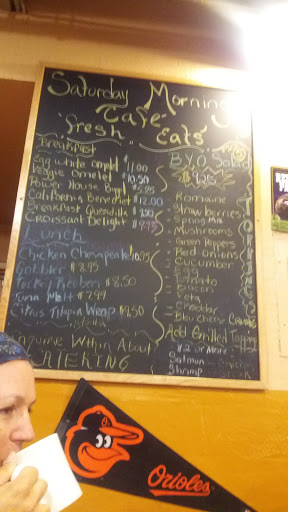 Saturday Morning
Cafe
"fresh Eats"
Breakfast
Egg white omelet $11.00
Veggie omelet $10.50
Power House Bagel
California Benedict $12.00
Breakfast Quesadilla
Croissant Delight
Lunch
Chicken Chesapeake $10.95
Gobbler $8.95
Turkey Reuben $8.50
Tuna Melt $7.99
Citrus Tilapia Wrap $9.50
Enquire Within About
CATERING
B.Y.O Salad
Romaine
Strawberries
Spring Mix
Mushrooms
Green Peppers
Red onions
Cucumber
Egg
Tomato
Bacon
Feta
Cheddar
Blue cheese
Add Grilled Topping
$2 or More
Salmon
Shrimp
Orioles